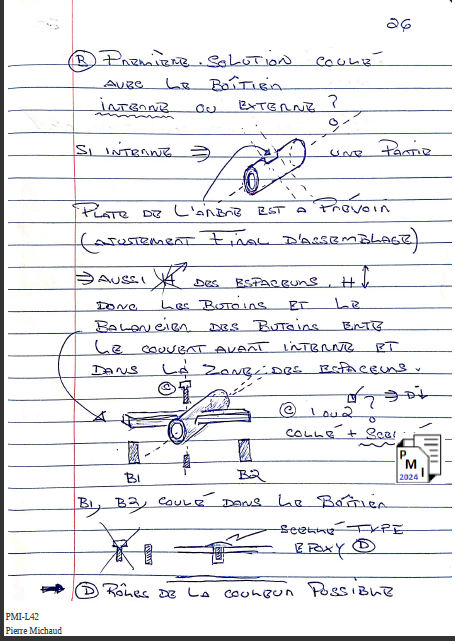 26
Ⓑ PREMIÈRE SOLUTION COULÉ
AVEC LE BOÎTIER
INTERNE OU EXTERNE ?
SI INTERNE ⇒ UNE PARTIE
PLATE DE L'ARBRE EST A PRÉVOIR
(AJUSTEMENT FINAL D'ASSEMBLAGE)
⇒ AUSSI DES ESPACEURS. H↕
DONC LES BUTOIRS ET LE
BALANCIER DES BUTOIRS ENTE
LE COUVERT AVANT INTERNE ET
DANS LA ZONE DES ESPACEURS.
Ⓒ
⇒ D↓
Ⓒ 1 OU 2 ?
COLLÉ +
B1 B2
B1, B2, COULÉ DANS LE BOÎTIER
SCELLÉ TYPE
EPOXY Ⓓ
Ⓓ RÔLES DE LA COULEUR POSSIBLE
P
M
I
2024
PMI-L42
Pierre Michaud